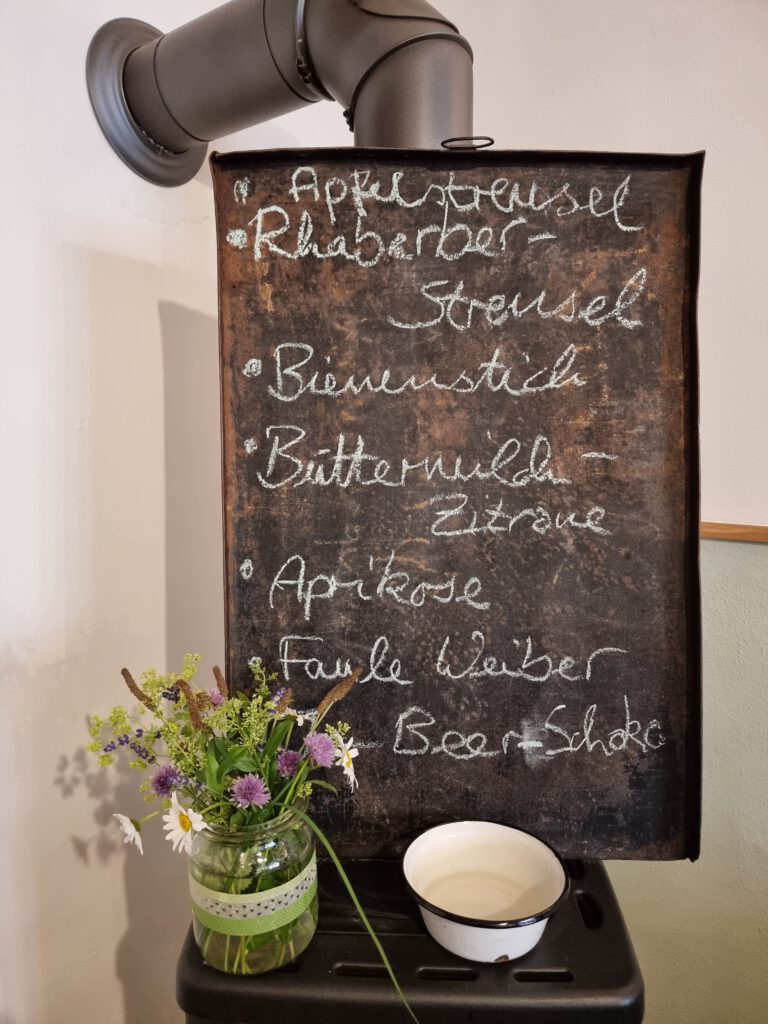 Apfelstreusel
Rhabarber-
Streusel
Bienenstich
Buttermilch-
Zitrone
Aprikose
Faule Weiber
Beer-Schoko